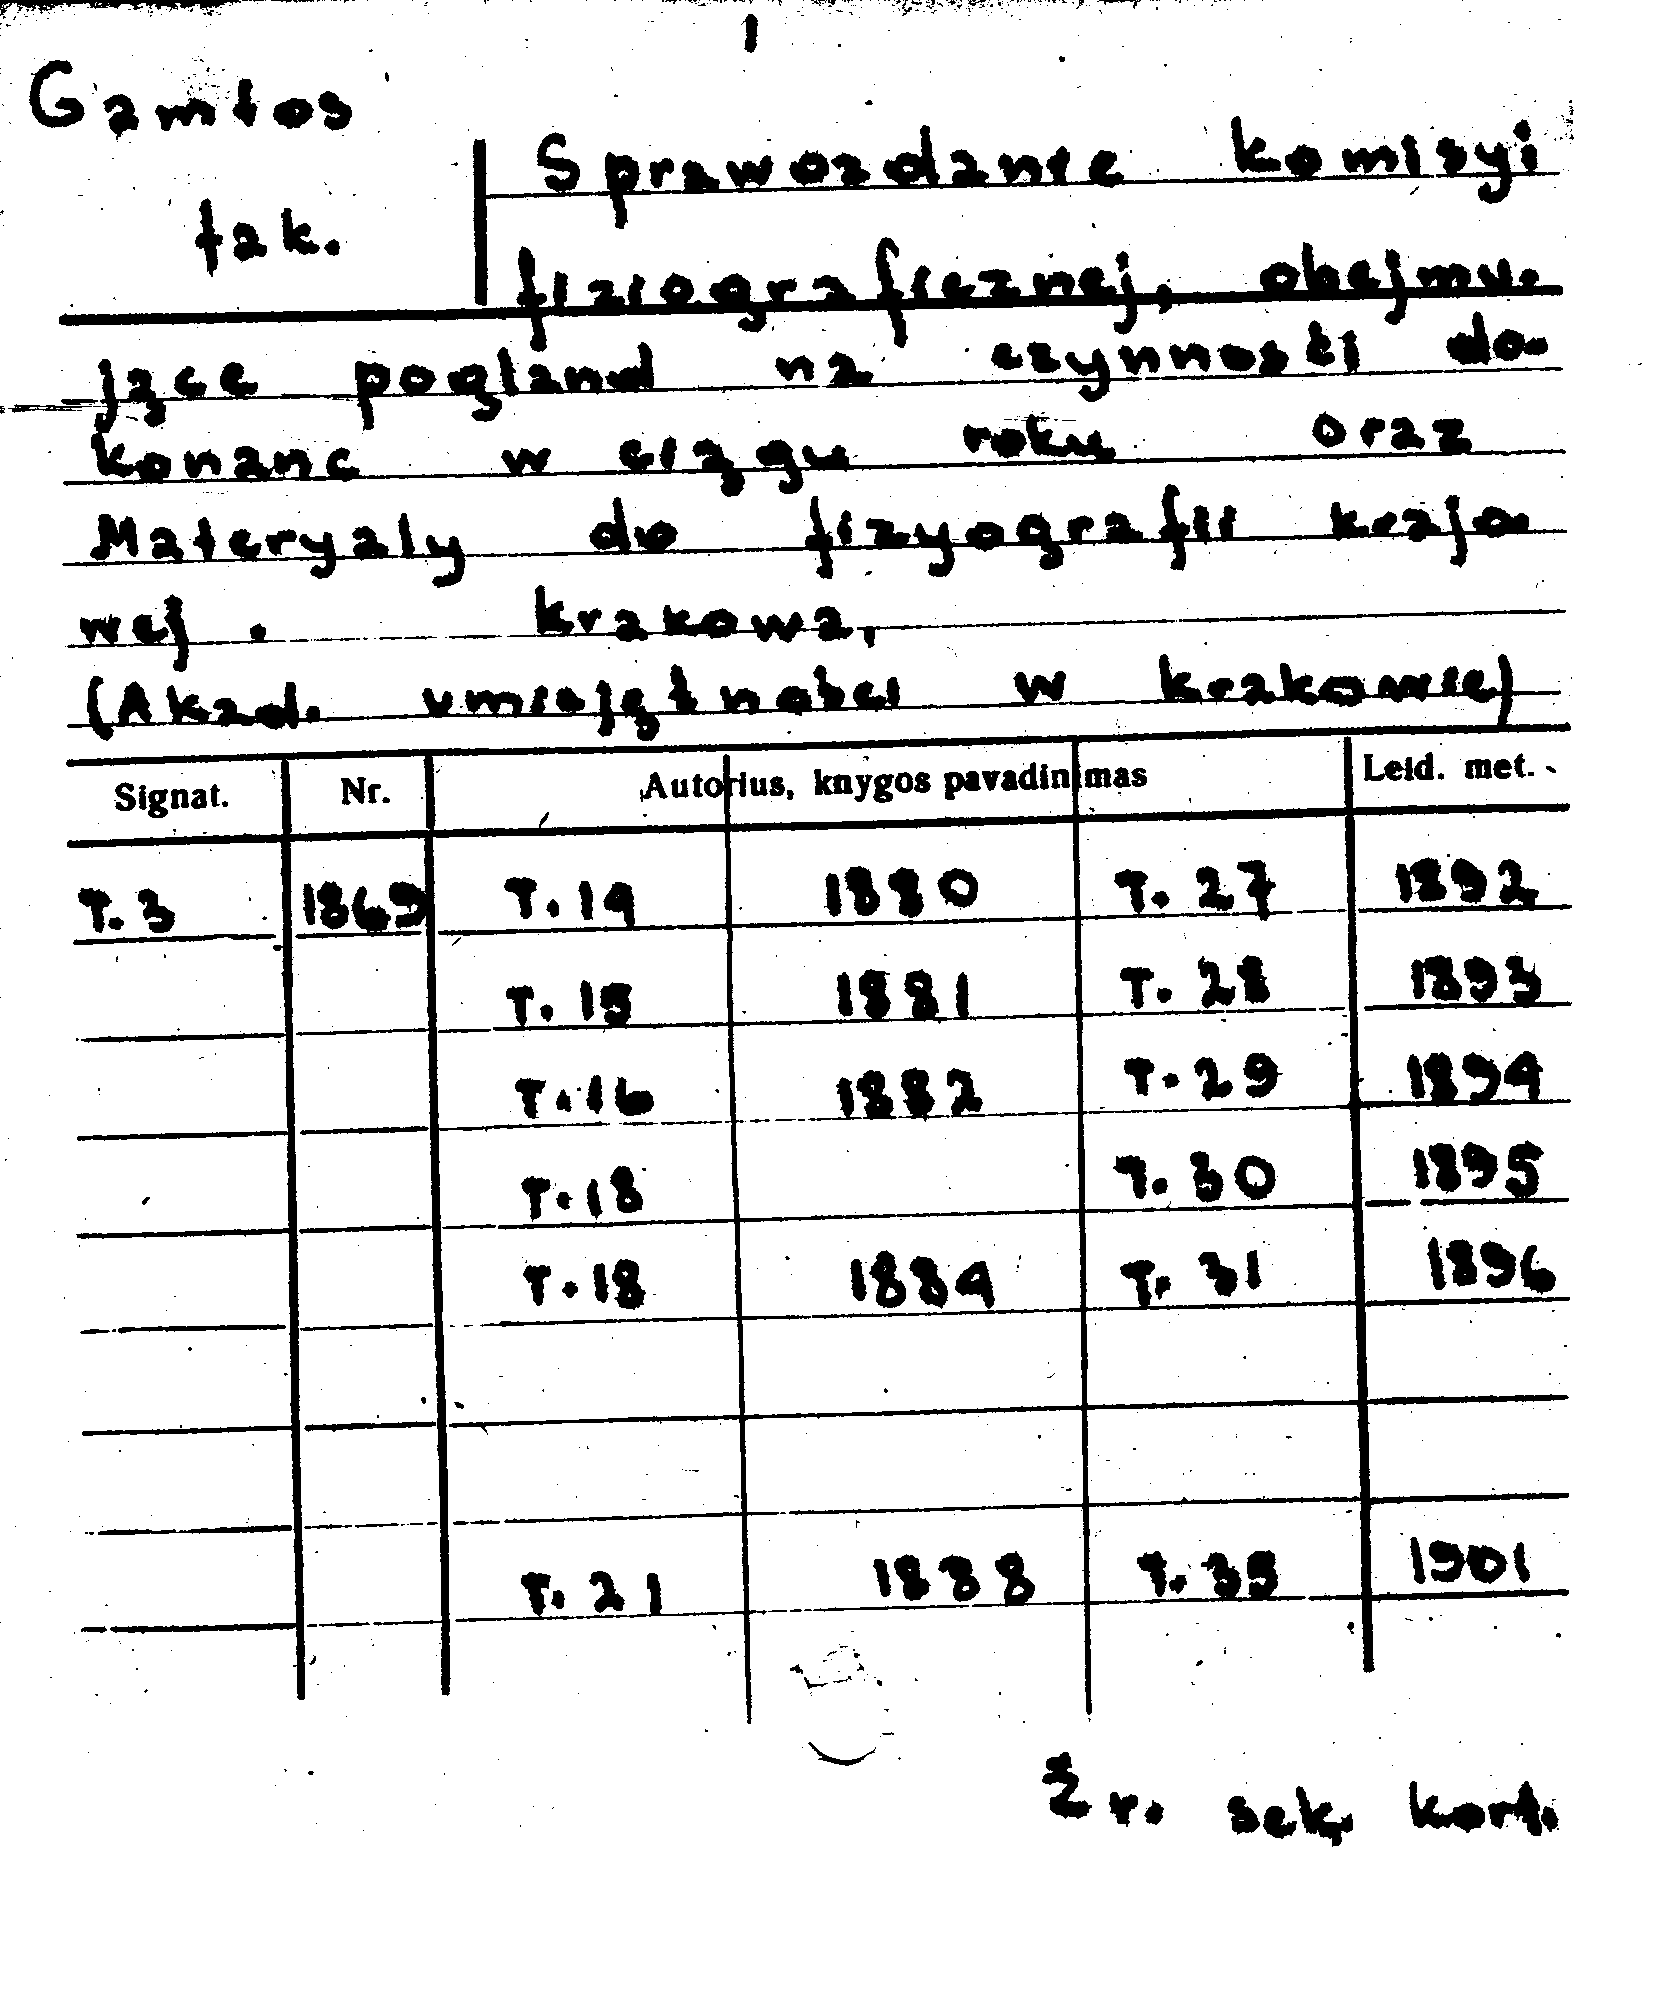 1
Gamtos
fak.
Sprawozdanie komisyi
fiziograficznej, obejmu-
jące pogland na czynności do-
konane w ciągu roku oraz
Materyaly do fizyografii krajo-
wej. Krakowa,
(Akad. umiejętności w Krakowie)
Signat. Nr. Autorius, knygos pavadinimas Leid. met.
T. 3 1869 T. 14 1880 T. 27 1892
T. 15 1881 T. 28 1893
T. 16 1882 T. 29 1894
T. 18 T. 30 1895
T. 18 1884 T. 31 1896
T. 21 1888 T. 35 1901
Žr. sek. kort.